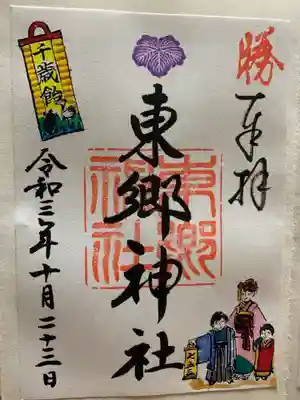 勝
奉拝
東郷神社
東郷神社
令和三年十月二十三日
千歳飴
七五三